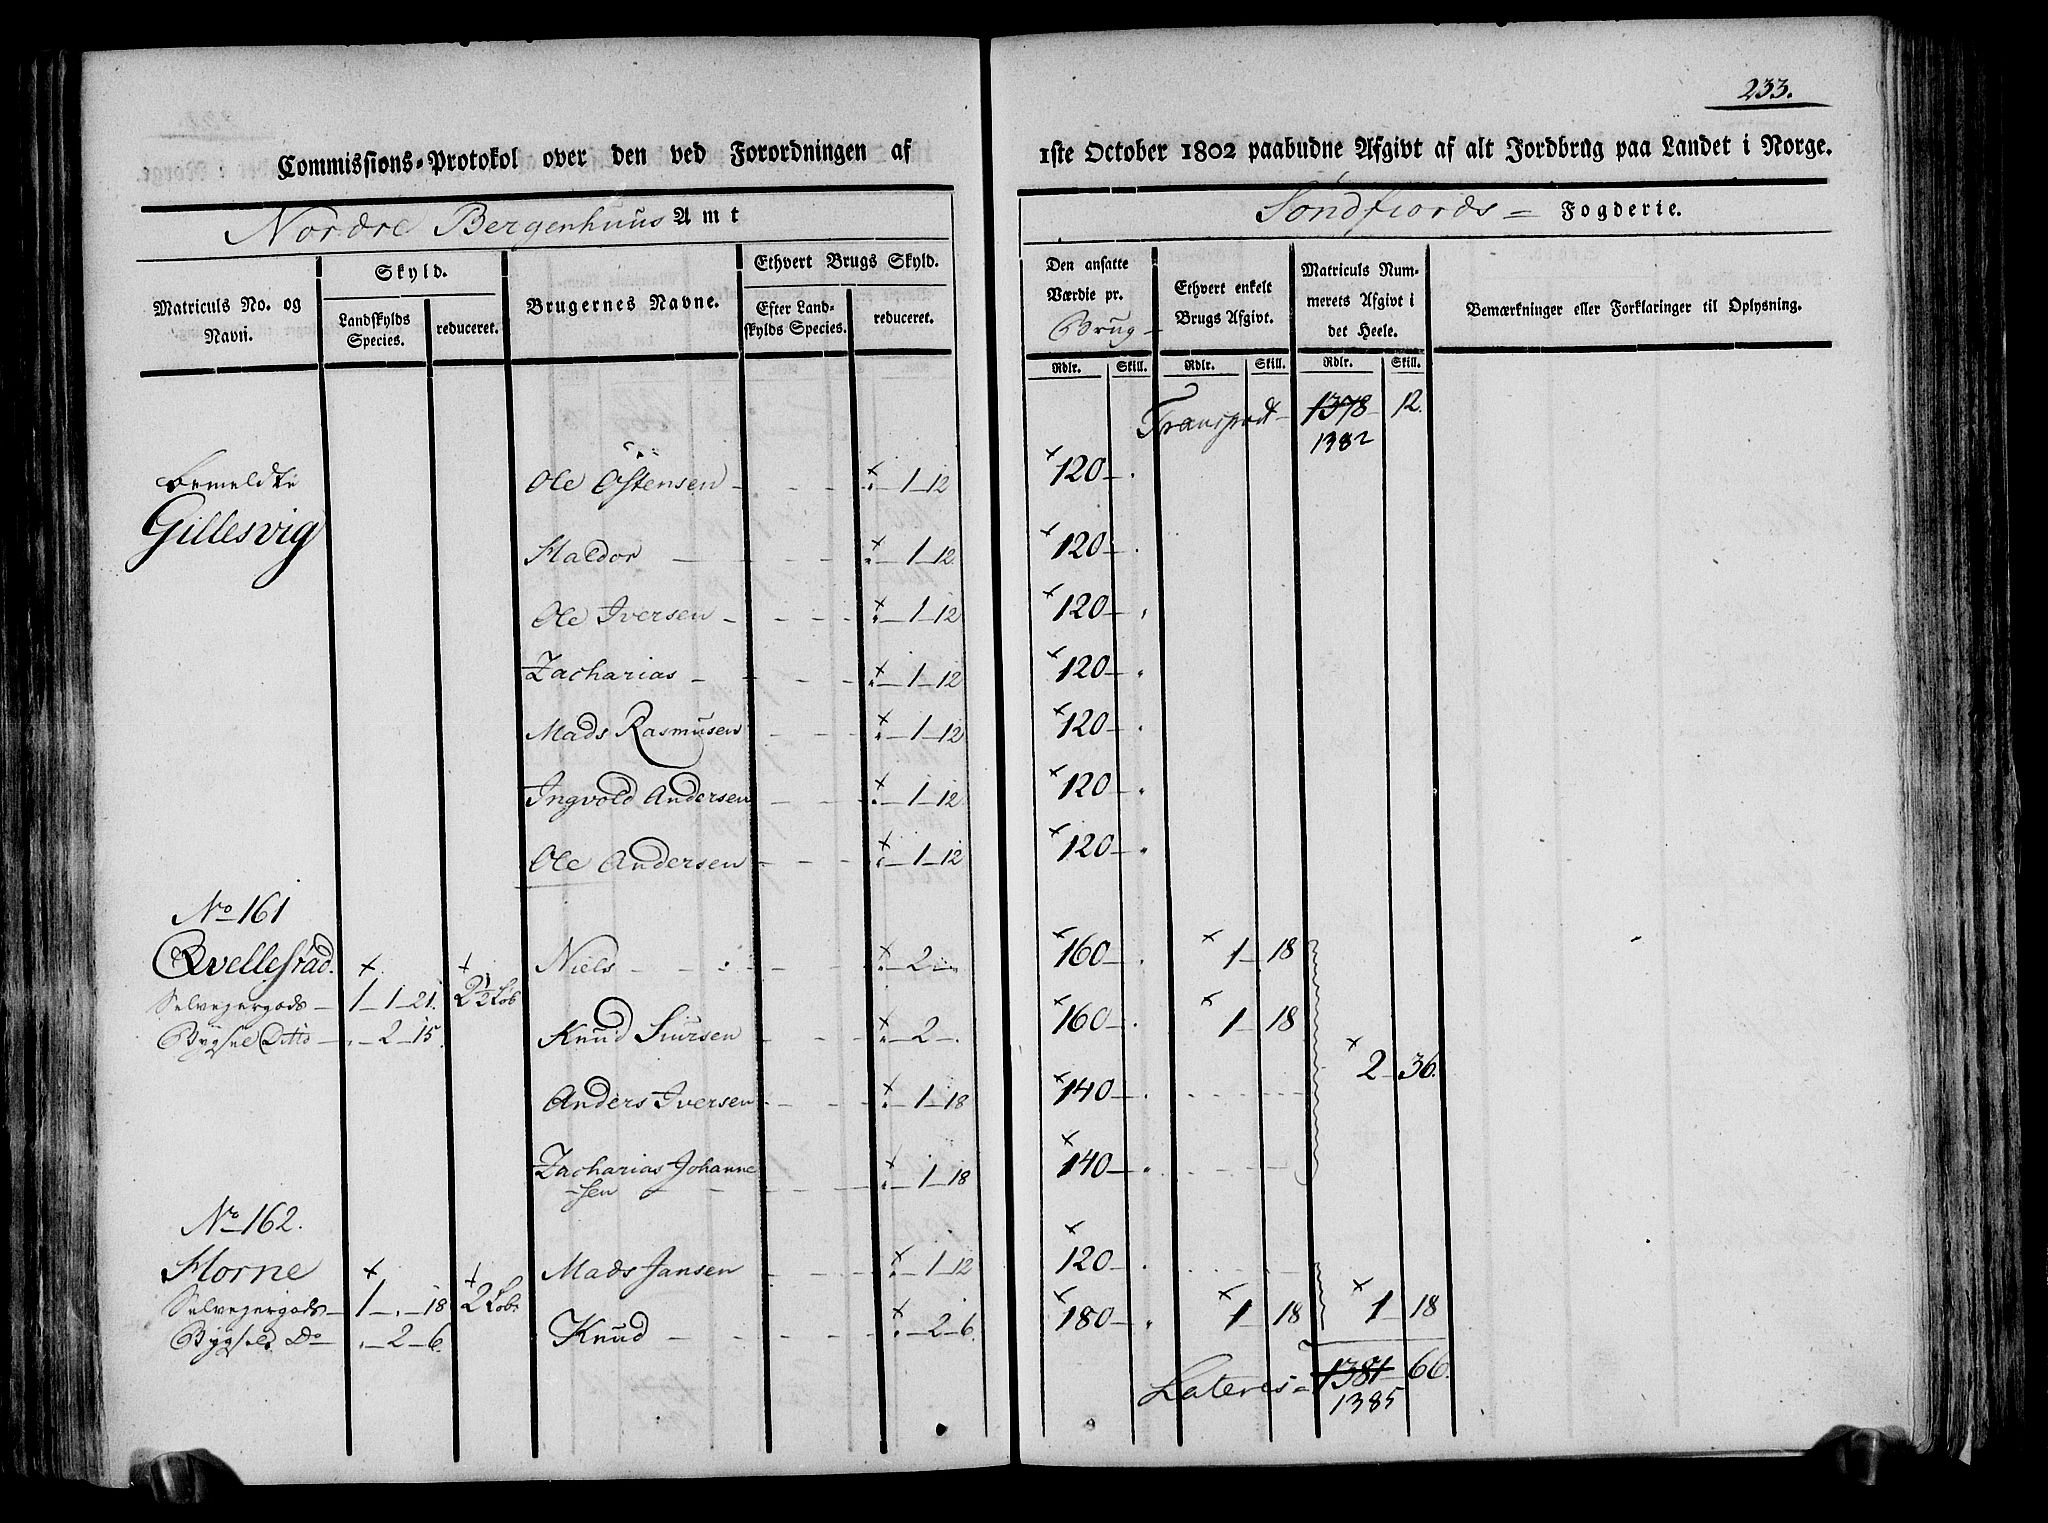 233.
Commissions-Protokol over den ved Forordningen af 1ste October 1802 paabudne Afgivt af alt Jordbrug paa Landet i Norge.
Nordre Bergenhuus Amt
Søndfiords Fogderie.
Matriculs No. og Navn.
Skyld.
Landskylds Species.
reduceret.
Brugernes Navne.
Ethvert Brugs Skyld.
Efter Landskylds Species.
reduceret.
Den ansatte Værdie pr. Brug
Ethvert enkelt Brugs Afgivt.
Matriculs Nummerets Afgivt i det Heele.
Bemærkninger eller Forklaringer til Oplysning.
Rdlr. Skill. Rdlr. Skill. Rdlr. Skill.
Transport 1378 12.
1382
bemeldte Ole Ostensen - - - × " - 1 - 12 × 120 - "
Gillesvig
Haldor - - - × " - 1 - 12 × 120 - "
Ole Iversen - - - × " - 1 - 12 × 120 - "
Zacharias - - - × " - 1 - 12 × 120 - "
Mads Rasmusen - - × " - 1 - 12 × 120 - "
Ingvold Andersen - - × " - 1 - 12 × 120 - "
Ole Andersen - - × " - 1 - 12 × 120 - "
No 161
Qvellestad. × × Niels - - - × " - 2 - " × 160 - " × 1 - 18
Selvejergods - 1 - 1 - 21. 2½ Løb
Bygsel Ditto - " - 2 - 15. Knud Siursen - - × " - 2 - " × 160 - " × 1 - 18
× 2 - 36.
Anders Iversen - - × " - 1 - 18 × 140 - "
Zacharias Johanne
-sen - - - × " - 1 - 18 × 140 - "
No 162.
Horne × × Mads Jansen - - × " - 1 - 12 × 120 - "
Selvejergods - 1 - " - 18 2 Løb
Bygsel Do - " - 2 - 6. Knud - - - × " - 2 - 6. × 180 - " × 1 - 18 × 1 - 18
Lateres = 1381 - 66.
1385